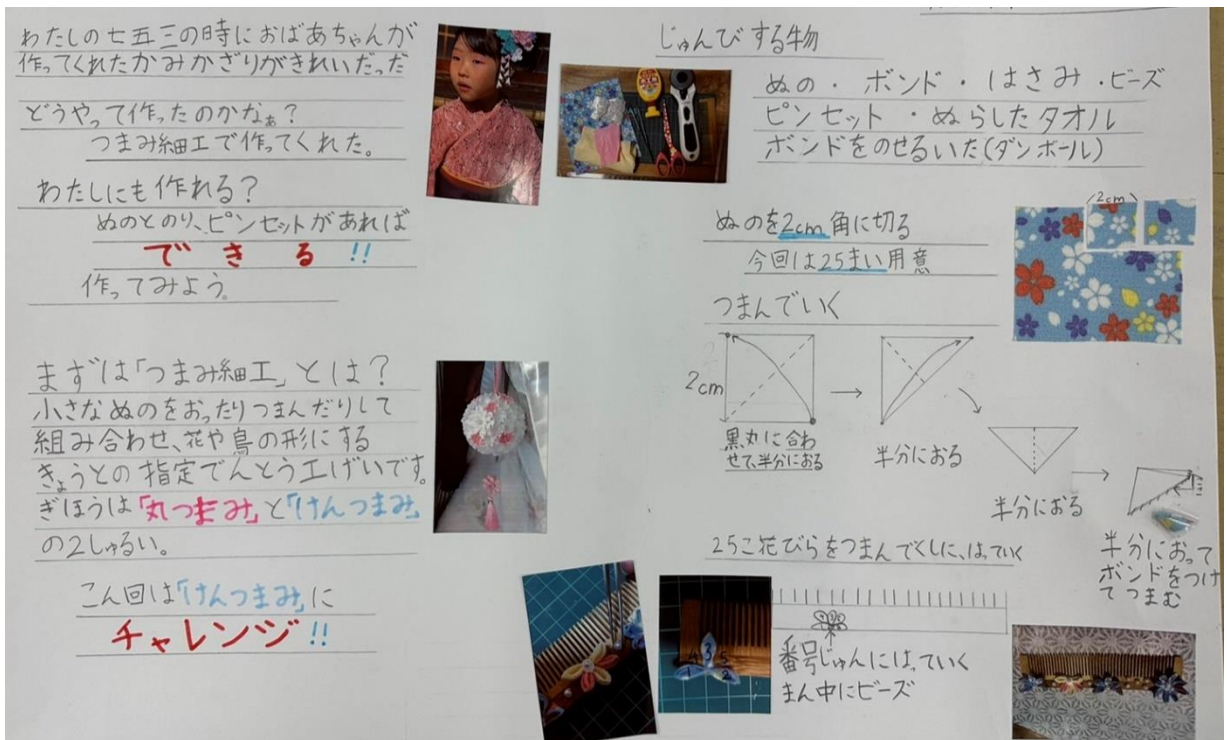 わたしの七五三の時におばあちゃんが
作ってくれたかみかざりがきれいだっだ
どうやって作ったのかなぁ?
つまみ細工で作ってくれた。
わたしにも作れる?
ぬのとのり、ピンセットがあれば
できる!!
作ってみよう。
まずは「つまみ細工」とは?
小さなぬのをおったりつまんだりして
組み合わせ、花や鳥の形にする
きょうとの指定でんとう工げいです。
ぎほうは「丸つまみ」と「けんつまみ」
の2しゅるい。
こん回は「けんつまみ」に
チャレンジ!!
じゅんびする物
ぬの・ボンド・はさみ・ビーズ
ピンセット・ぬらしたタオル
ボンドをのせるいた(ダンボール)
ぬのを2cm角に切る
今回は25まい用意
2cm
つまんでいく
2cm
黒丸に合わ
せて、半分におる
半分におる
半分におる
半分におって
ボンドをつけ
てつまむ
25こ花びらをつまんでくしに、はっていく
4 3 5
1 2
番号じゅんにはっていく
まん中にビーズ